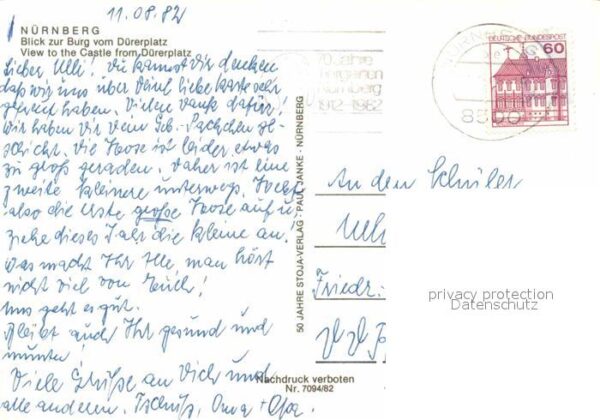 11.08.82
NÜRNBERG
Blick zur Burg vom Dürerplatz
View to the Castle from Dürerplatz
Lieber Ulli! Du kannst Dir denken
daß wir uns über Deine liebe Karte sehr
gefreut haben. Vielen Dank dafür!
Wir haben Dir Dein Geb. Päckchen ge-
schickt. Die Hose ist leider etwas
zu groß geraten. Daher ist eine
zweite kleinere unterwegs. Hebe
also die erste große Hose auf u.
ziehe dieses Jahr die kleine an!
Was macht Ihr alle, man hört
nicht viel von Euch!
Uns geht es gut.
Bleibt auch Ihr gesund und
munter!
Viele Grüße an Dich und
alle anderen. Tschüß, Oma + Opa.
50 JAHRE STOJA-VERLAG · PAUL JANKE · NÜRNBERG
Nachdruck verboten
Nr. 7094/82
70 Jahre
Tiergarten
Nürnberg
1912-1982
NÜRNBERG
8500
DEUTSCHE BUNDESPOST
60
An den Schüler
Ulli
Friedr.
privacy protection
Datenschutz